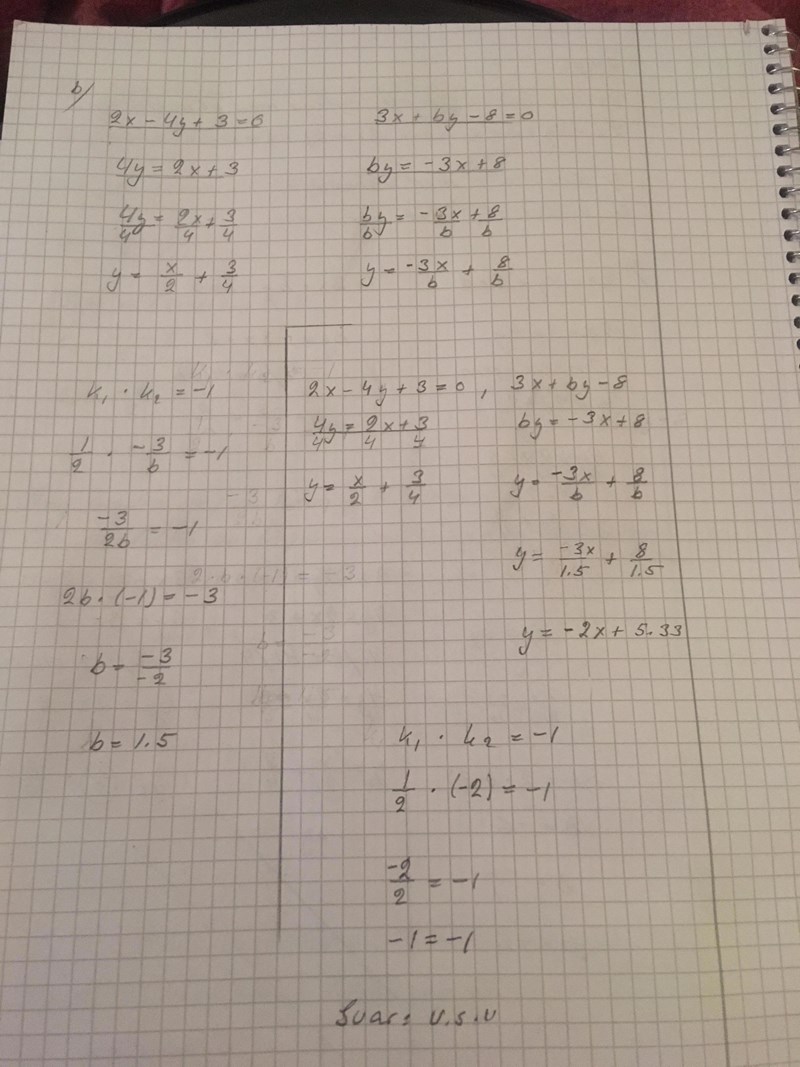 b)
2x - 4y + 3 = 0
4y = 2x + 3
4y/4 = 2x/4 + 3/4
y = x/2 + 3/4
3x + by - 8 = 0
by = -3x + 8
by/b = -3x/b + 8/b
y = -3x/b + 8/b
k₁ · k₂ = -1
1/2 · -3/b = -1
-3/2b = -1
2b · (-1) = -3
b = -3/-2
b = 1.5
2x - 4y + 3 = 0 , 3x + by - 8
4y/4 = 2x/4 + 3/4
y = x/2 + 3/4
by = -3x + 8
y = -3x/b + 8/b
y = -3x/1.5 + 8/1.5
y = -2x + 5.33
k₁ · k₂ = -1
1/2 · (-2) = -1
-2/2 = -1
-1 = -1
Svar: V.S.V